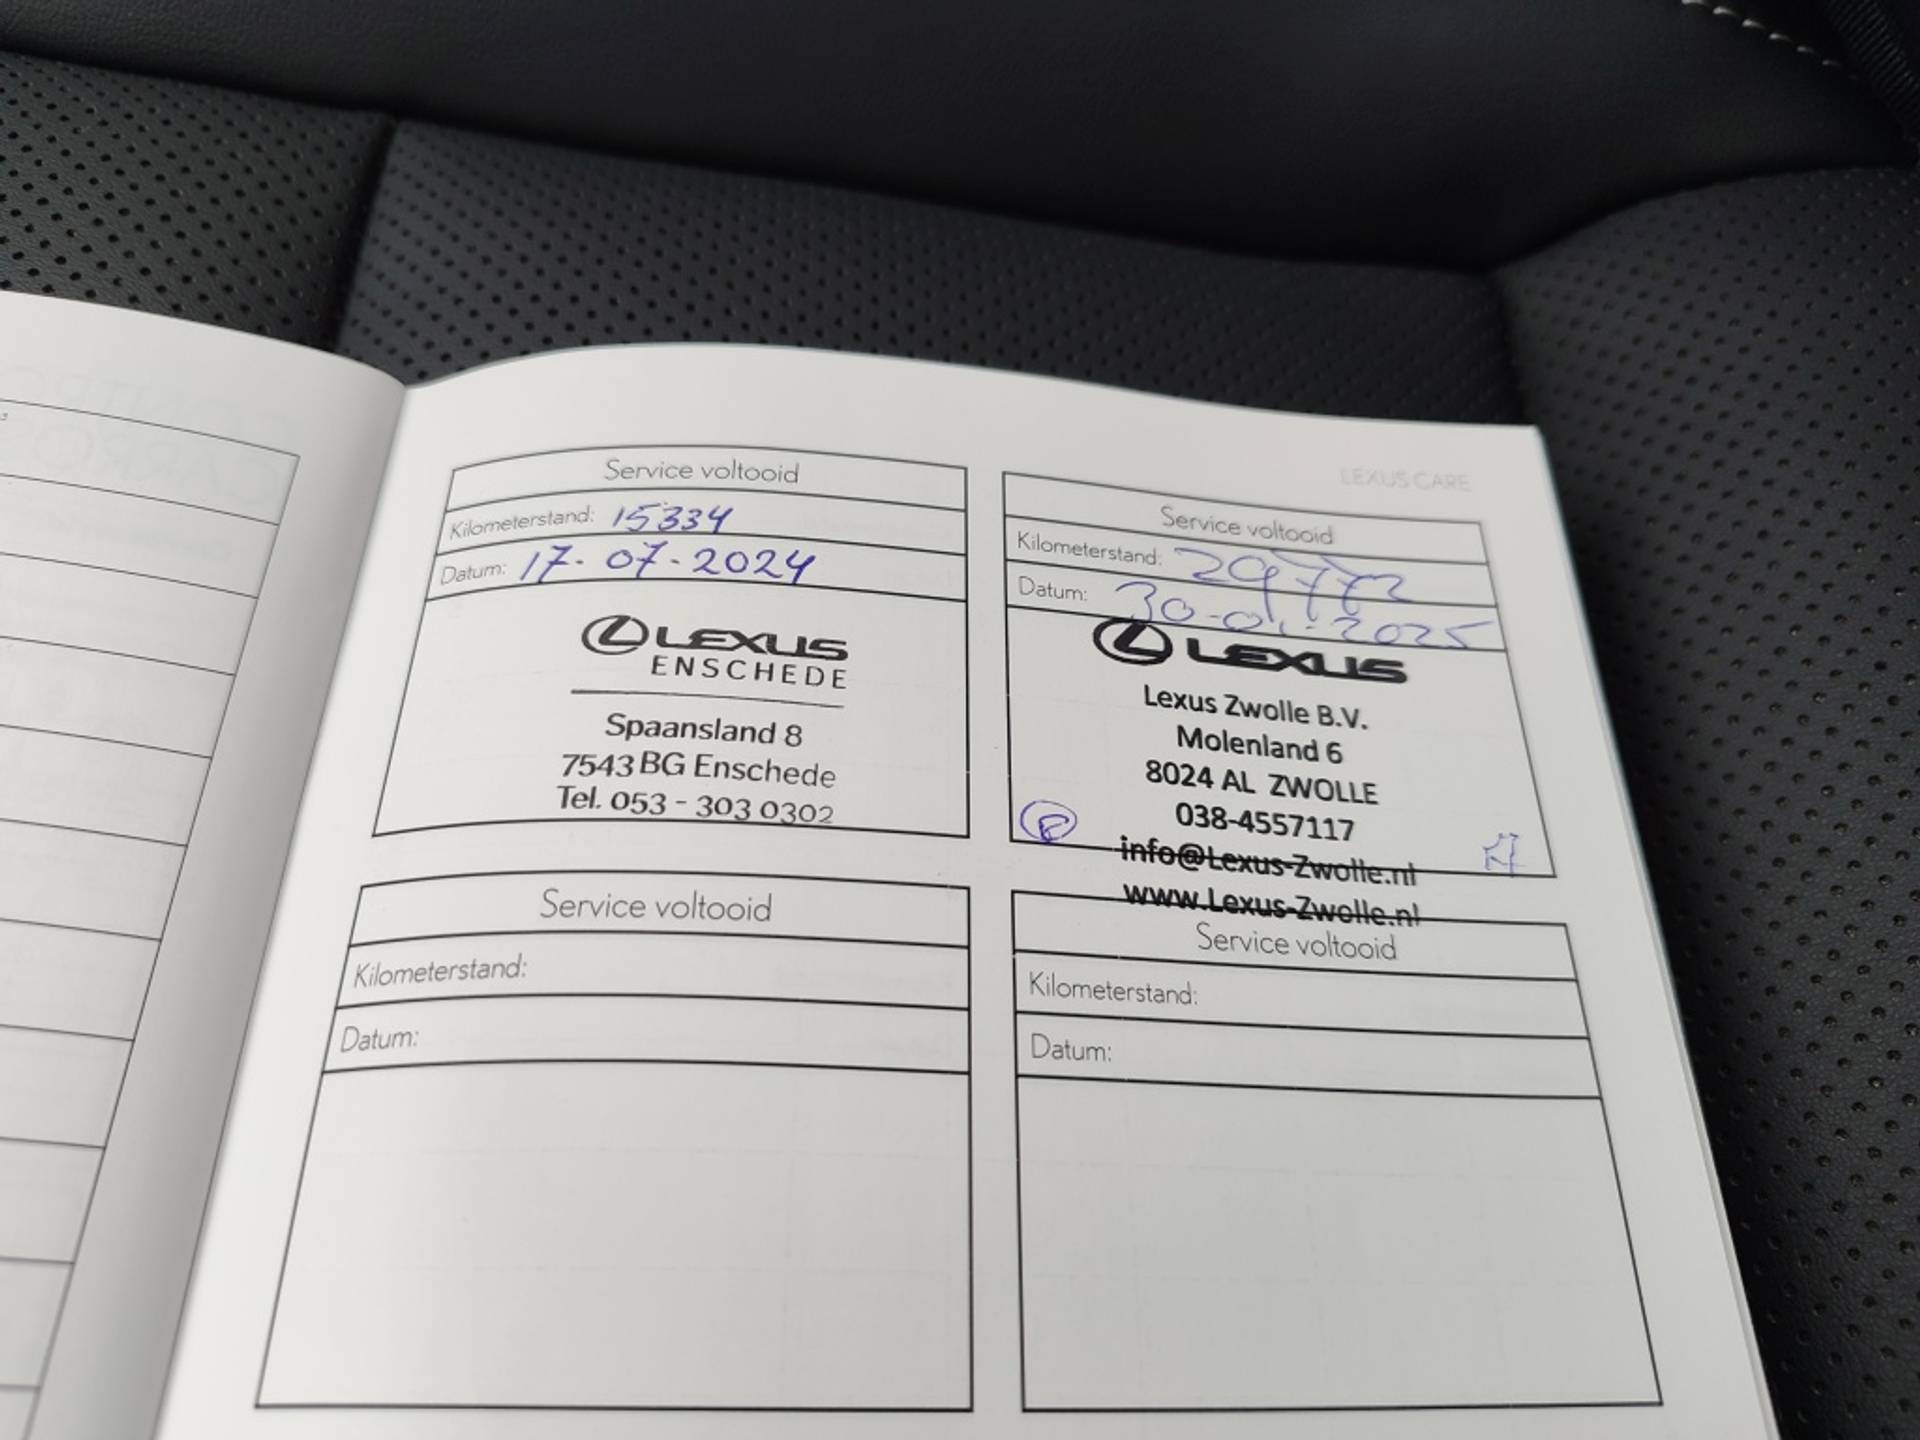 LEXUS CARE
Service voltooid
Kilometerstand: 15334
Datum: 17-07-2024
LEXUS
ENSCHEDE
Spaansland 8
7543 BG Enschede
Tel. 053 - 303 0302
Service voltooid
Kilometerstand: 29773
Datum: 30-01-2025
LEXUS
Lexus Zwolle B.V.
Molenland 6
8024 AL ZWOLLE
038-4557117
info@Lexus-Zwolle.nl
www.Lexus-Zwolle.nl
Service voltooid
Kilometerstand:
Datum:
Service voltooid
Kilometerstand:
Datum: